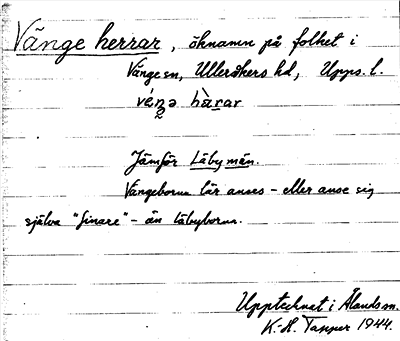 Vänge herrar, öknamn på folket i
Vänge sn, Ulleråkers hd, Upps. l.
vénࠍə hàrar
Jämför Läby män.
Vängeborna lär anses - eller anse sig
själva "finare" - än läbyborna.
Upptecknat i Ålands sn.
K.-H. Tapper 1944.